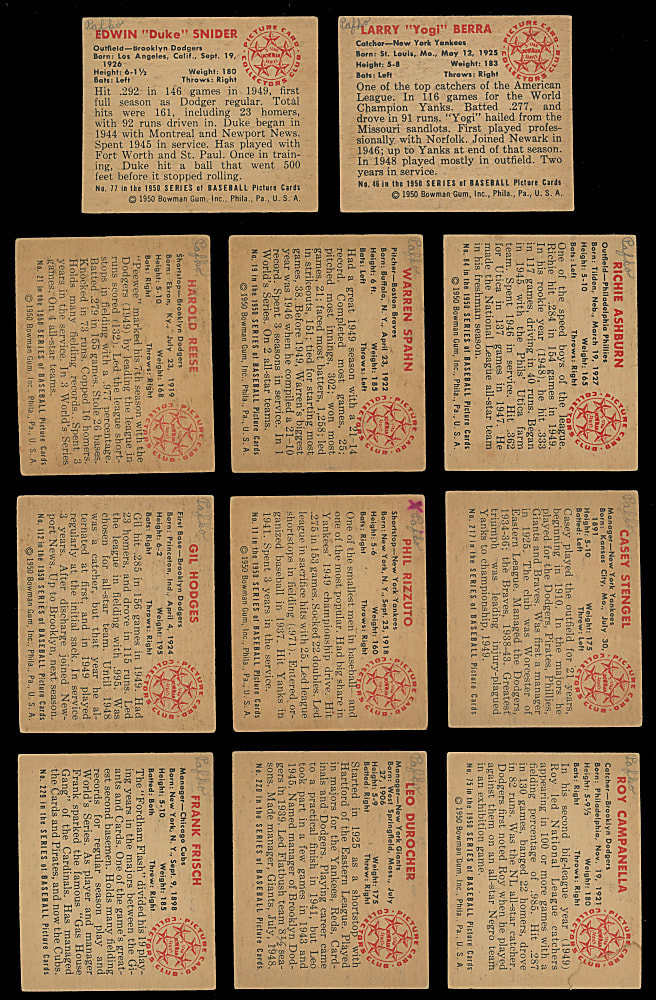 Pafko
EDWIN "Duke" SNIDER
Outfield—Brooklyn Dodgers
Born: Los Angeles, Calif., Sept. 19,
1926
Height: 6-1½ Weight: 180
Bats: Left Throws: Right
Hit .292 in 146 games in 1949, first
full season as Dodger regular. Total
hits were 161, including 23 homers,
with 92 runs driven in. Duke began in
1944 with Montreal and Newport News.
Spent 1945 in service. Has played with
Fort Worth and St. Paul. Once in train-
ing, Duke hit a ball that went 500
feet before it stopped rolling.
No. 77 in the 1950 SERIES of BASEBALL Picture Cards
© 1950 Bowman Gum, Inc., Phila., Pa., U. S. A.
PICTURE CARD COLLECTORS CLUB
Pafko
LARRY "Yogi" BERRA
Catcher—New York Yankees
Born: St. Louis, Mo., May 12, 1925
Height: 5-8 Weight: 183
Bats: Left Throws: Right
One of the top catchers of the American
League. In 116 games for the World
Champion Yanks. Batted .277, and
drove in 91 runs. "Yogi" hailed from the
Missouri sandlots. First played profes-
sionally with Norfolk. Joined Newark in
1946; up to Yanks at end of that season.
In 1948 played mostly in outfield. Two
years in service.
No. 46 in the 1950 SERIES of BASEBALL Picture Cards
© 1950 Bowman Gum, Inc., Phila., Pa., U. S. A.
PICTURE CARD COLLECTORS CLUB
Pafko
HAROLD REESE
Shortstop—Brooklyn Dodgers
Born: Ekron, Ky., July 23, 1919
Height: 5-10 Weight: 168
Bats: Right Throws: Right
"Peewee" marked his 7th season with the
Dodgers in 1949 by leading the league in
runs scored (132). Led the league short-
stops in fielding with a .977 percentage.
Batted .279 in 153 games. Stole 26 bases.
Knocked in 73 runs, topped 16 homers.
Holds many fielding records. Spent 3
years in the service. In 3 World's Series
games. On 4 all-star teams.
No. 21 in the 1950 SERIES of BASEBALL Picture Cards
© 1950 Bowman Gum, Inc., Phila., Pa., U. S. A.
PICTURE CARD COLLECTORS CLUB
Pafko
WARREN SPAHN
Pitcher—Boston Braves
Born: Buffalo, N. Y., April 23, 1922
Height: 6 ft. Weight: 185
Bats: Left Throws: Left
Had a great 1949 season with a 21-14
record. Completed most games, 25;
pitched most innings, 302; won most
games, 21; faced most batters, 1,258; led
in strikeouts, 151; tied for starting most
games, 38. Before 1949, Warren's biggest
year was 1946 when he compiled a 21-10
record. Spent 3 seasons in service. In 1
World's Series and 2 all-star teams.
No. 19 in the 1950 SERIES of BASEBALL Picture Cards
© 1950 Bowman Gum, Inc., Phila., Pa., U. S. A.
PICTURE CARD COLLECTORS CLUB
Pafko
RICHIE ASHBURN
Outfield—Philadelphia Phillies
Born: Tilden, Neb., March 19, 1927
Height: 5-10 Weight: 165
Bats: Left Throws: Right
One of the speed boys of the league.
Richie hit .284 in 154 games in 1949.
In his rookie year (1948), he hit .333
in 117 games, driving in 40 runs. Began
in 1945 with Utica, a Phillies farm
team. Spent 1946 in service. Hit .362
for Utica in 137 games in 1947. He
made the National League all-star team
in his freshman season.
No. 84 in the 1950 SERIES of BASEBALL Picture Cards
© 1950 Bowman Gum, Inc., Phila., Pa., U. S. A.
PICTURE CARD COLLECTORS CLUB
Pafko
GIL HODGES
First Base—Brooklyn Dodgers
Born: Princeton, Ind., April 4, 1924
Height: 6-2 Weight: 195
Bats: Right Throws: Right
Gil hit .285 in 156 games in 1949. Had
23 homers, and drove in 115 runs. Led
the league in fielding with .995. Was
chosen for all-star team. Until 1948
was a catcher, but that year he al-
ternated at first, and in 1949 played
regularly at the initial sack. In service
3 years. After discharge joined New-
port News. Up to Brooklyn next season.
No. 112 in the 1950 SERIES of BASEBALL Picture Cards
© 1950 Bowman Gum, Inc., Phila., Pa., U. S. A.
PICTURE CARD COLLECTORS CLUB
X Pafko
PHIL RIZZUTO
Shortstop—New York Yankees
Born: New York, N. Y., Sept. 25, 1918
Height: 5-6 Weight: 160
Bats: Right Throws: Right
One of the smallest men in baseball and
one of the most popular. Had big share in
Yankees' 1949 championship drive. Hit
.275 in 153 games. Socked 22 doubles. Led
league in sacrifice hits with 25. Led league
shortstops in fielding (.971). Entered or-
ganized baseball in 1937, hit Yanks in
1941. Spent 3 years in the service.
No. 11 in the 1950 SERIES of BASEBALL Picture Cards
© 1950 Bowman Gum, Inc., Phila., Pa., U. S. A.
PICTURE CARD COLLECTORS CLUB
Pafko
CASEY STENGEL
Manager—New York Yankees
Born: Kansas City, Mo., July 30,
1891
Height: 5-10 Weight: 175
Batted: Left Threw: Left
Casey played the outfield for 21 years,
beginning in 1910. In the majors he
played for the Dodgers, Pirates, Phillies,
Giants and Braves. Was first a manager
in 1925. The club was Worcester of
Eastern League. Managed the Dodgers,
1934-36; the Braves, 1938-43. Greatest
triumph was leading injury-plagued
Yanks to championship, 1949.
No. 217 in the 1950 SERIES of BASEBALL Picture Cards
© 1950 Bowman Gum, Inc., Phila., Pa., U. S. A.
PICTURE CARD COLLECTORS CLUB
Pafko
FRANK FRISCH
Manager—Chicago Cubs
Born: New York, N. Y., Sept. 9, 1898
Height: 5-10 Weight: 185
Batted: Both Threw: Right
The "Fordham Flash" divided his 19 play-
ing years in the majors between the Gi-
ants and Cards. One of the game's great-
est second basemen. Holds many fielding
records in regular season play and
World's Series. As player and manager
Frank sparked the famous "Gas House
Gang" of the Cardinals. Has managed
the Cards and Pirates, and now the Cubs.
No. 229 in the 1950 SERIES of BASEBALL Picture Cards
© 1950 Bowman Gum, Inc., Phila., Pa., U. S. A.
PICTURE CARD COLLECTORS CLUB
Pafko
LEO DUROCHER
Manager—New York Giants
Born: West Springfield, Mass., July
27, 1906
Height: 5-9 Weight: 175
Batted: Right Threw: Right
Started in 1925 as a shortstop with
Hartford of the Eastern League. Played
in majors for the Yankees, Reds, Card-
inals and Dodgers. Playing career came
to a practical finish in 1941, but Leo
took part in a few games in 1943 and
1945. Named manager of Brooklyn Dod-
gers in 1939. Led Flatbush team, 8½ sea-
sons. Made manager, Giants, July, 1948.
No. 220 in the 1950 SERIES of BASEBALL Picture Cards
© 1950 Bowman Gum, Inc., Phila., Pa., U. S. A.
PICTURE CARD COLLECTORS CLUB
Pafko
ROY CAMPANELLA
Catcher—Brooklyn Dodgers
Born: Philadelphia, Nov. 19, 1921
Height: 5-9½ Weight: 180
Bats: Right Throws: Right
In his second big-league year (1949)
Roy led National League catchers
appearing in 100 or more games with a
fielding percentage of .985. Hit .287
in 130 games, banged 22 homers, drove
in 82 runs. Was the NL all-star catcher.
Dodgers first noted Roy when he played
against them on an all-star Negro team
in an exhibition game.
No. 75 in the 1950 SERIES of BASEBALL Picture Cards
© 1950 Bowman Gum, Inc., Phila., Pa., U. S. A.
PICTURE CARD COLLECTORS CLUB